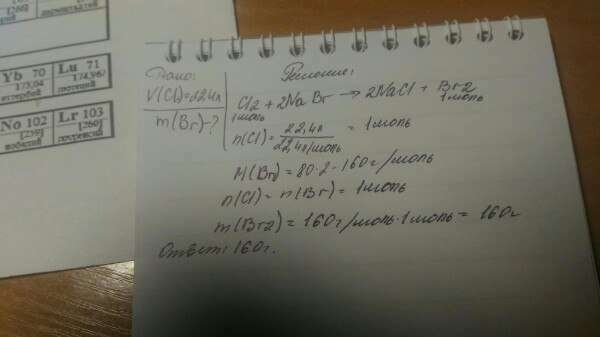 [260]
Yb 70
173,04
иттербий
Lu 71
174,967
лютеций
No 102
[259]
нобелий
Lr 103
[260]
лоуренсий
Дано:
V(Cl)=22,4л
m(Br)-?
Решение:
Cl2 + 2NaBr → 2NaCl + Br2
1моль 1моль
n(Cl) = 22,4л / 22,4л/моль = 1моль
M(Br) = 80·2=160г/моль
n(Cl) = n(Br) = 1моль
m(Br2) = 160г/моль·1моль = 160г
Ответ: 160г.